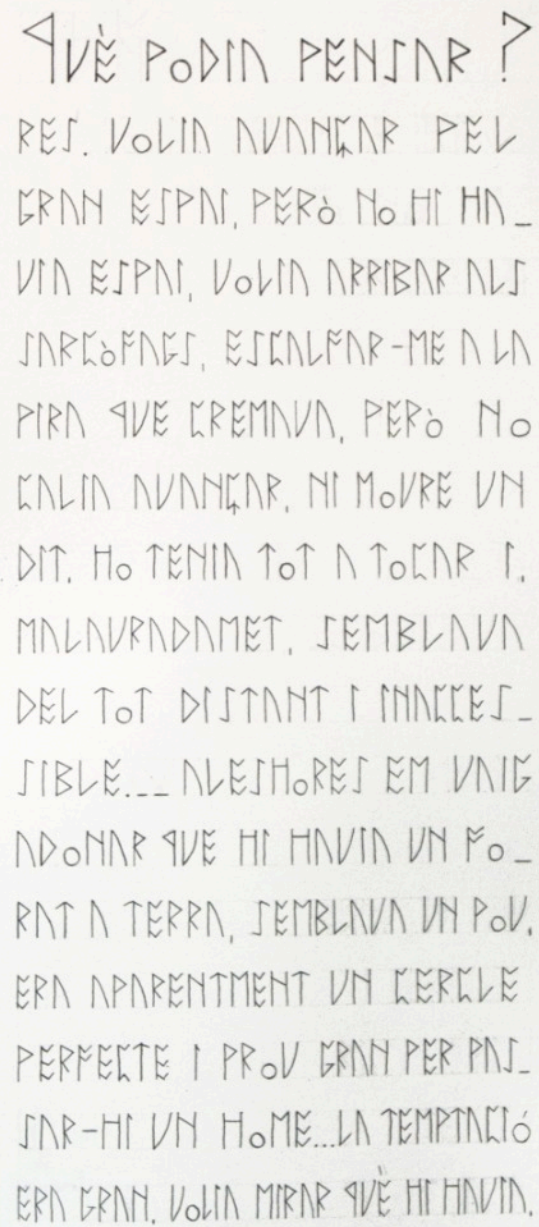 QUÈ PODIA PENSAR ?
RES. VOLIA AVANÇAR PEL
GRAN ESPAI, PERÒ NO HI HA_
VIA ESPAI, VOLIA ARRIBAR ALS
SARCÒFAGS, ESCALFAR-ME A LA
PIRA QUE CREMAVA, PERÒ NO
CALIA AVANÇAR, NI MOURE UN
DIT. HO TENIA TOT A TOCAR I,
MALAURADAMET, SEMBLAVA
DEL TOT DISTANT I INACCES_
SIBLE... ALESHORES EM VAIG
ADONAR QUE HI HAVIA UN FO_
RAT A TERRA, SEMBLAVA UN POU.
ERA APARENTMENT UN CERCLE
PERFECTE I PROU GRAN PER PAS_
SAR-HI UN HOME...LA TEMPTACIÓ
ERA GRAN. VOLIA MIRAR QUÈ HI HAVIA,